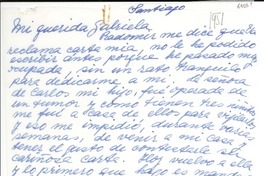 Santiago
1951
Mi querida Gabriela
Radomir me dice que Ud.
reclama carta mia, no le he podido
escribir antes porque he pasado muy
ocupada, sin un rato tranquilo
para dedicarme a Ud. la señora
de Carlos mi hijo, fué operada de
un tumor y como tienen tres niños
me fuí a casa de ellos para vigilarlos
y eso me impidió, durante varias
semanas, de venir a mi casa y
tener el gusto de contestarle su
cariñosa carta. Hoy vuelvo a ella
y lo primero que hago es mandar